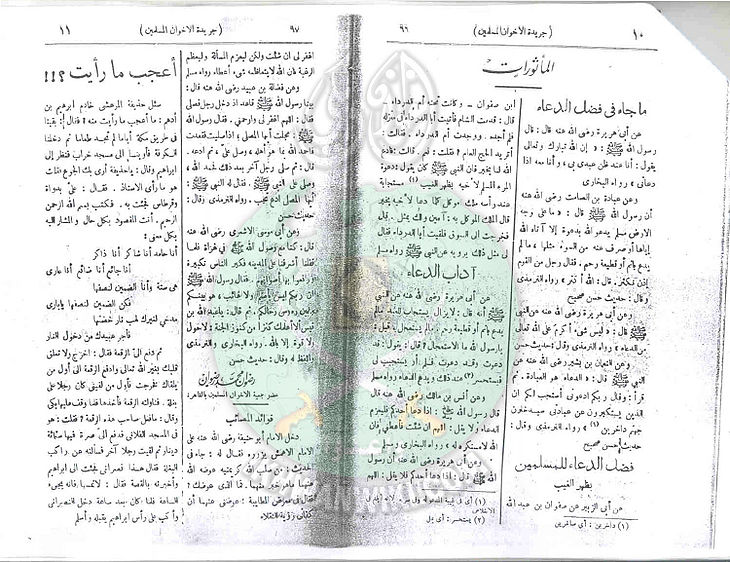 ١٠
( جريدة الاخوان المسلمين )
٩٦
المأثورات
ما جاء فى فضل الدعاء
عن أبى هريرة رضى الله عنه قال : قال
رسول الله ﷺ : « إن الله تبارك وتعالى
يقول : أنا عند ظن عبدى بى ، وأنا معه إذا
دعانى » رواه البخارى
وعن عبادة بن الصامت رضى الله عنه
أن رسول الله ﷺ قال : « ما على وجه
الارض مسلم يدعو الله بدعوة إلا آتاه الله
إياها أو صرف عنه من السوء مثلها ، ما لم
يدع باثم أو قطيعة رحم ، فقال رجل من القوم
إذن نكثر . قال : الله أكثر » رواه الترمذى
وقال : حديث حسن صحيح
ﷺ قال : « ليس شىء أكرم على الله تعالى
من الدعاء » رواه الترمذى وقال : حديث حسن
وعن النعمان بن بشير رضى الله عنه عن
النبى ﷺ قال : « الدعاء هو العبادة . ثم
قرأ : وقال ربكم ادعونى أستجب لكم إن
الذين يستكبرون عن عبادتى سيدخلون
جهنم داخرين (١) » رواه الترمذى وقال :
حديث حسن صحيح
فضل الدعاء للمسلمين
بظهر الغيب
عن أبى الزبير عن صفوان بن عبد الله
(١) داخرين : أى صاغرين
ابن صفوان - وكانت تحته أم الدرداء -
قال : قدمت الشام فأتيت أبا الدرداء فى منزله
فلم أجده . ووجدت أم الدرداء . فقالت :
أتريد الحج العام ؟ فقلت : نعم . قالت : فادع
الله لنا بخير فان النبى ﷺ كان يقول : دعوة
المرء المسلم لأخيه بظهر الغيب (١) مستجابة
عند رأسه ملك موكل كلما دعا لأخيه بخير
قال الملك الموكل به : آمين ولك بمثل . قال
فخرجت الى السوق فلقيت أبا الدرداء فقال
لى مثل ذلك يرويه عن النبى ﷺ رواه مسلم
آداب الدعاء
عن أبى هريرة رضى الله عنه عن النبى
ﷺ أنه قال : لا يزال يستجاب للعبد ما لم
يدع باثم أو قطيعة رحم ما لم يستعجل . قيل :
يارسول الله ما الاستعجال ؟ قال : يقول : قد
دعوت وقد دعوت فلم أر يستجيب لى
فيستحسر (٢) عند ذلك ، ويدع الدعاء رواه مسلم
وعن أنس بن مالك رضى الله عنه قال
قال رسول الله ﷺ : إذا دعا أحدكم فليعزم
الدعاء ولا يقل : اللهم إن شئت فأعطنى فان
الله لا مستكره له » رواه البخارى ومسلم
وعن أبى هريرة رضى الله عنه أن رسول
الله ﷺ قال : إذا دعا أحدكم فلا يقل : اللهم
(٢) يستحسر : أى يمل
٩٧
( جريدة الاخوان المسلمين )
١١
اغفر لى ان شئت ولكن ليعزم المسألة وليعظم
الرغبة فان الله لا يتعاظمه شىء أعطاه رواه مسلم
وعن فضالة بن عبيد رضى الله عنه قال :
بينا رسول الله ﷺ قاعد إذ دخل رجل فصلى
فقال : اللهم اغفر لى وارحمنى . فقال رسول الله
ﷺ : عجلت أيها المصلى ، إذا صليت فقعدت
فاحمد الله بما هو أهله ، وصل على ، ثم ادعه .
قال : ثم صلى رجل آخر بعد ذلك فحمد الله ،
وصلى على النبى ﷺ . فقال له النبى ﷺ :
أيها المصلى ادع تجب » رواه الترمذى وقال :
حديث حسن
وعن أبى موسى الاشعرى رضى الله عنه
قال : كنا مع رسول الله ﷺ فى غزاة فلما
قفلنا أشرفنا على المدينة فكبر الناس تكبيرة
ورفعوا بها أصواتهم . فقال رسول الله ﷺ
ان ربكم ليس بأصم ولا غائب ، هو بينكم
وبين رءوس رحالكم . ثم قال . ياعبد الله بن
قيس ألا أعلمك كنزاً من كنوز الجنة : لاحول
ولا قوة إلا بالله . رواه البخارى والترمذى
واللفظ له وقال : حديث حسن
رضوان محمد رضوان
عضو جمعية الاخوان المسلمين بالقاهرة
فوائد المصائب
دخل الامام أبو حنيفة رضى الله عنه على
الامام الاعمش يزوره فقال له : جاء فى
الحديث : من سلب الله كريمتيه عوضه الله
عنهما ما هو خير منهما . فما الذى عوضك ؟
فقال فى معرض المطايبة : عوضنى عنهما أن
كفانى رؤية الثقلاء
أعجب ما رأيت ؟!!
سئل حذيفة المرعشى خادم ابراهيم بن
أدهم : ما أعجب ما رأيت منه ؟ فقال : بقينا
فى طريق مكة أياما لم نجد طعاما ثم دخلنا
الكوفة فأوينا الى مسجد خراب فنظر إلى
ابراهيم وقال : ياحذيفة أرى بك الجوع فقلت
هو ما رأى الاستاذ . فقال : على بدواة
وقرطاس فجئت به . فكتب بسم الله الرحمن
الرحيم . أنت المقصود بكل حال ، والمشار اليه
بكل معنى :
أنا حامد أنا شاكر أنا ذاكر
أنا جائع أنا ضائع أنا عارى
هى ستة وأنا الضمين لنصفها
فكن الضمين لنصفها يابارى
مدحى لغيرك لهب نار خضتها
فأجر عبيدك من دخول النار
ثم دفع الى الرقعة فقال : اخرج ولا تعلق
قلبك بغير الله تعالى وادفع الرقعة الى أول من
يلقاك فخرجت فأول من لقينى كان رجلا على
بغلة . فناولته الرقعة فأخذها فلما وقف عليها بكى
وقال : مافعل صاحب هذه الرقعة ؟ فقلت : هو
فى المسجد الفلانى فدفع الى صرة فيها ستمائة
دينار ثم لقيت رجلا آخر فسألته عن راكب
البغلة فقال هذا نصرانى فجئت الى ابراهيم
وأخبرته بالقصة فقال : لا تمسها فانه يجىء
الساعة فلما كان بعد ساعة دخل النصرانى
وأكب على رأس ابراهيم يقبله وأسلم